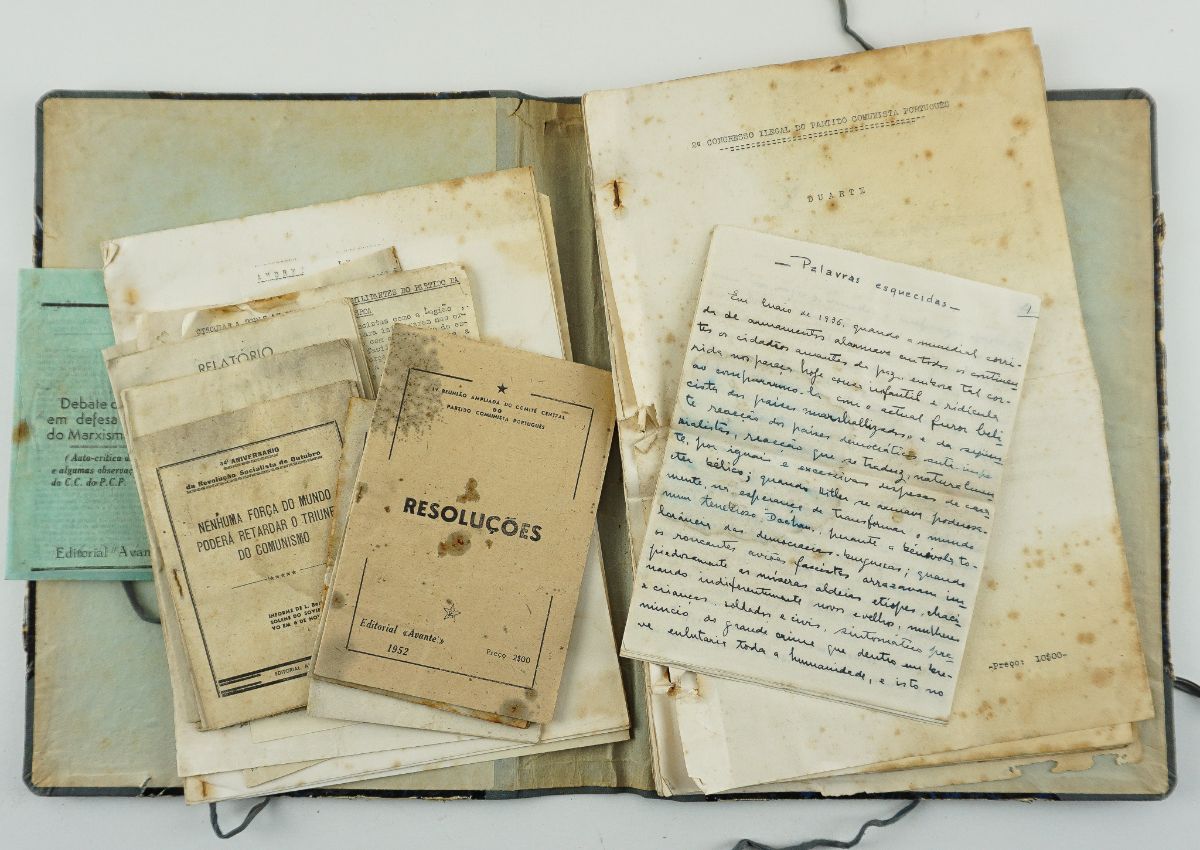 Debate
em defesa
do Marxism
(Auto-crítica
e algumas observaç
do C.C. do P.C.P.
Editorial "Avan
RELATÓRIO
34º ANIVERSÁRIO
da Revolução Socialista de Outubro
NENHUMA FORÇA DO MUNDO
PODERÁ RETARDAR O TRIUNF
DO COMUNISMO
INFORME DE L.
EDITORIAL
REUNIÃO AMPLIADA DO COMITÉ CENTRAL
DO
PARTIDO COMUNISTA PORTUGUÊS
RESOLUÇÕES
Editorial «Avante»
1952
Preço 2$00
2º CONGRESSO ILEGAL DO PARTIDO COMUNISTA PORTUGUÊS
DUARTE
-Preço: 10$00-
— Palavras esquecidas —
1
Em Maio de 1936, quando a mundial corri-
da de armamentos alarmava em todos os continen-
tes os cidadãos amantes da paz, embora tal cor-
rida nos pareça hoje coisa infantil e ridícula
ao compararmo-la com o actual furor beli-
cista dos países marshallizados e da seguin-
te reacção dos países democráticos anti-impe
rialistas, reacção que se traduz, naturalmen
te, por iguais e excessivas despesas de carác
ter bélico; quando Hitler se armava poderosa-
mente, na esperança de transformar o mundo
num tenebroso Dachau, perante a benévola to-
lerância das democracias burguesas; quando
os roncantes aviões fascistas arrazavam im-
piedosamente as míseras aldeias etiopes, chaci-
nando indiferentemente novos e velhos, mulheres
e crianças, soldados e civis, sintomático pre-
núncio do grande crime que dentro em bre-
ve enlutaria toda a humanidade, e isto no